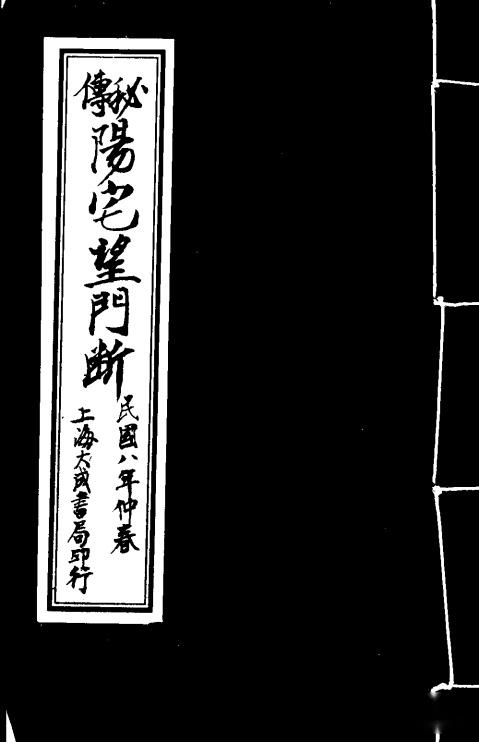 秘傳
陽宅望門斷
民國八年仲春
上海大成書局印行